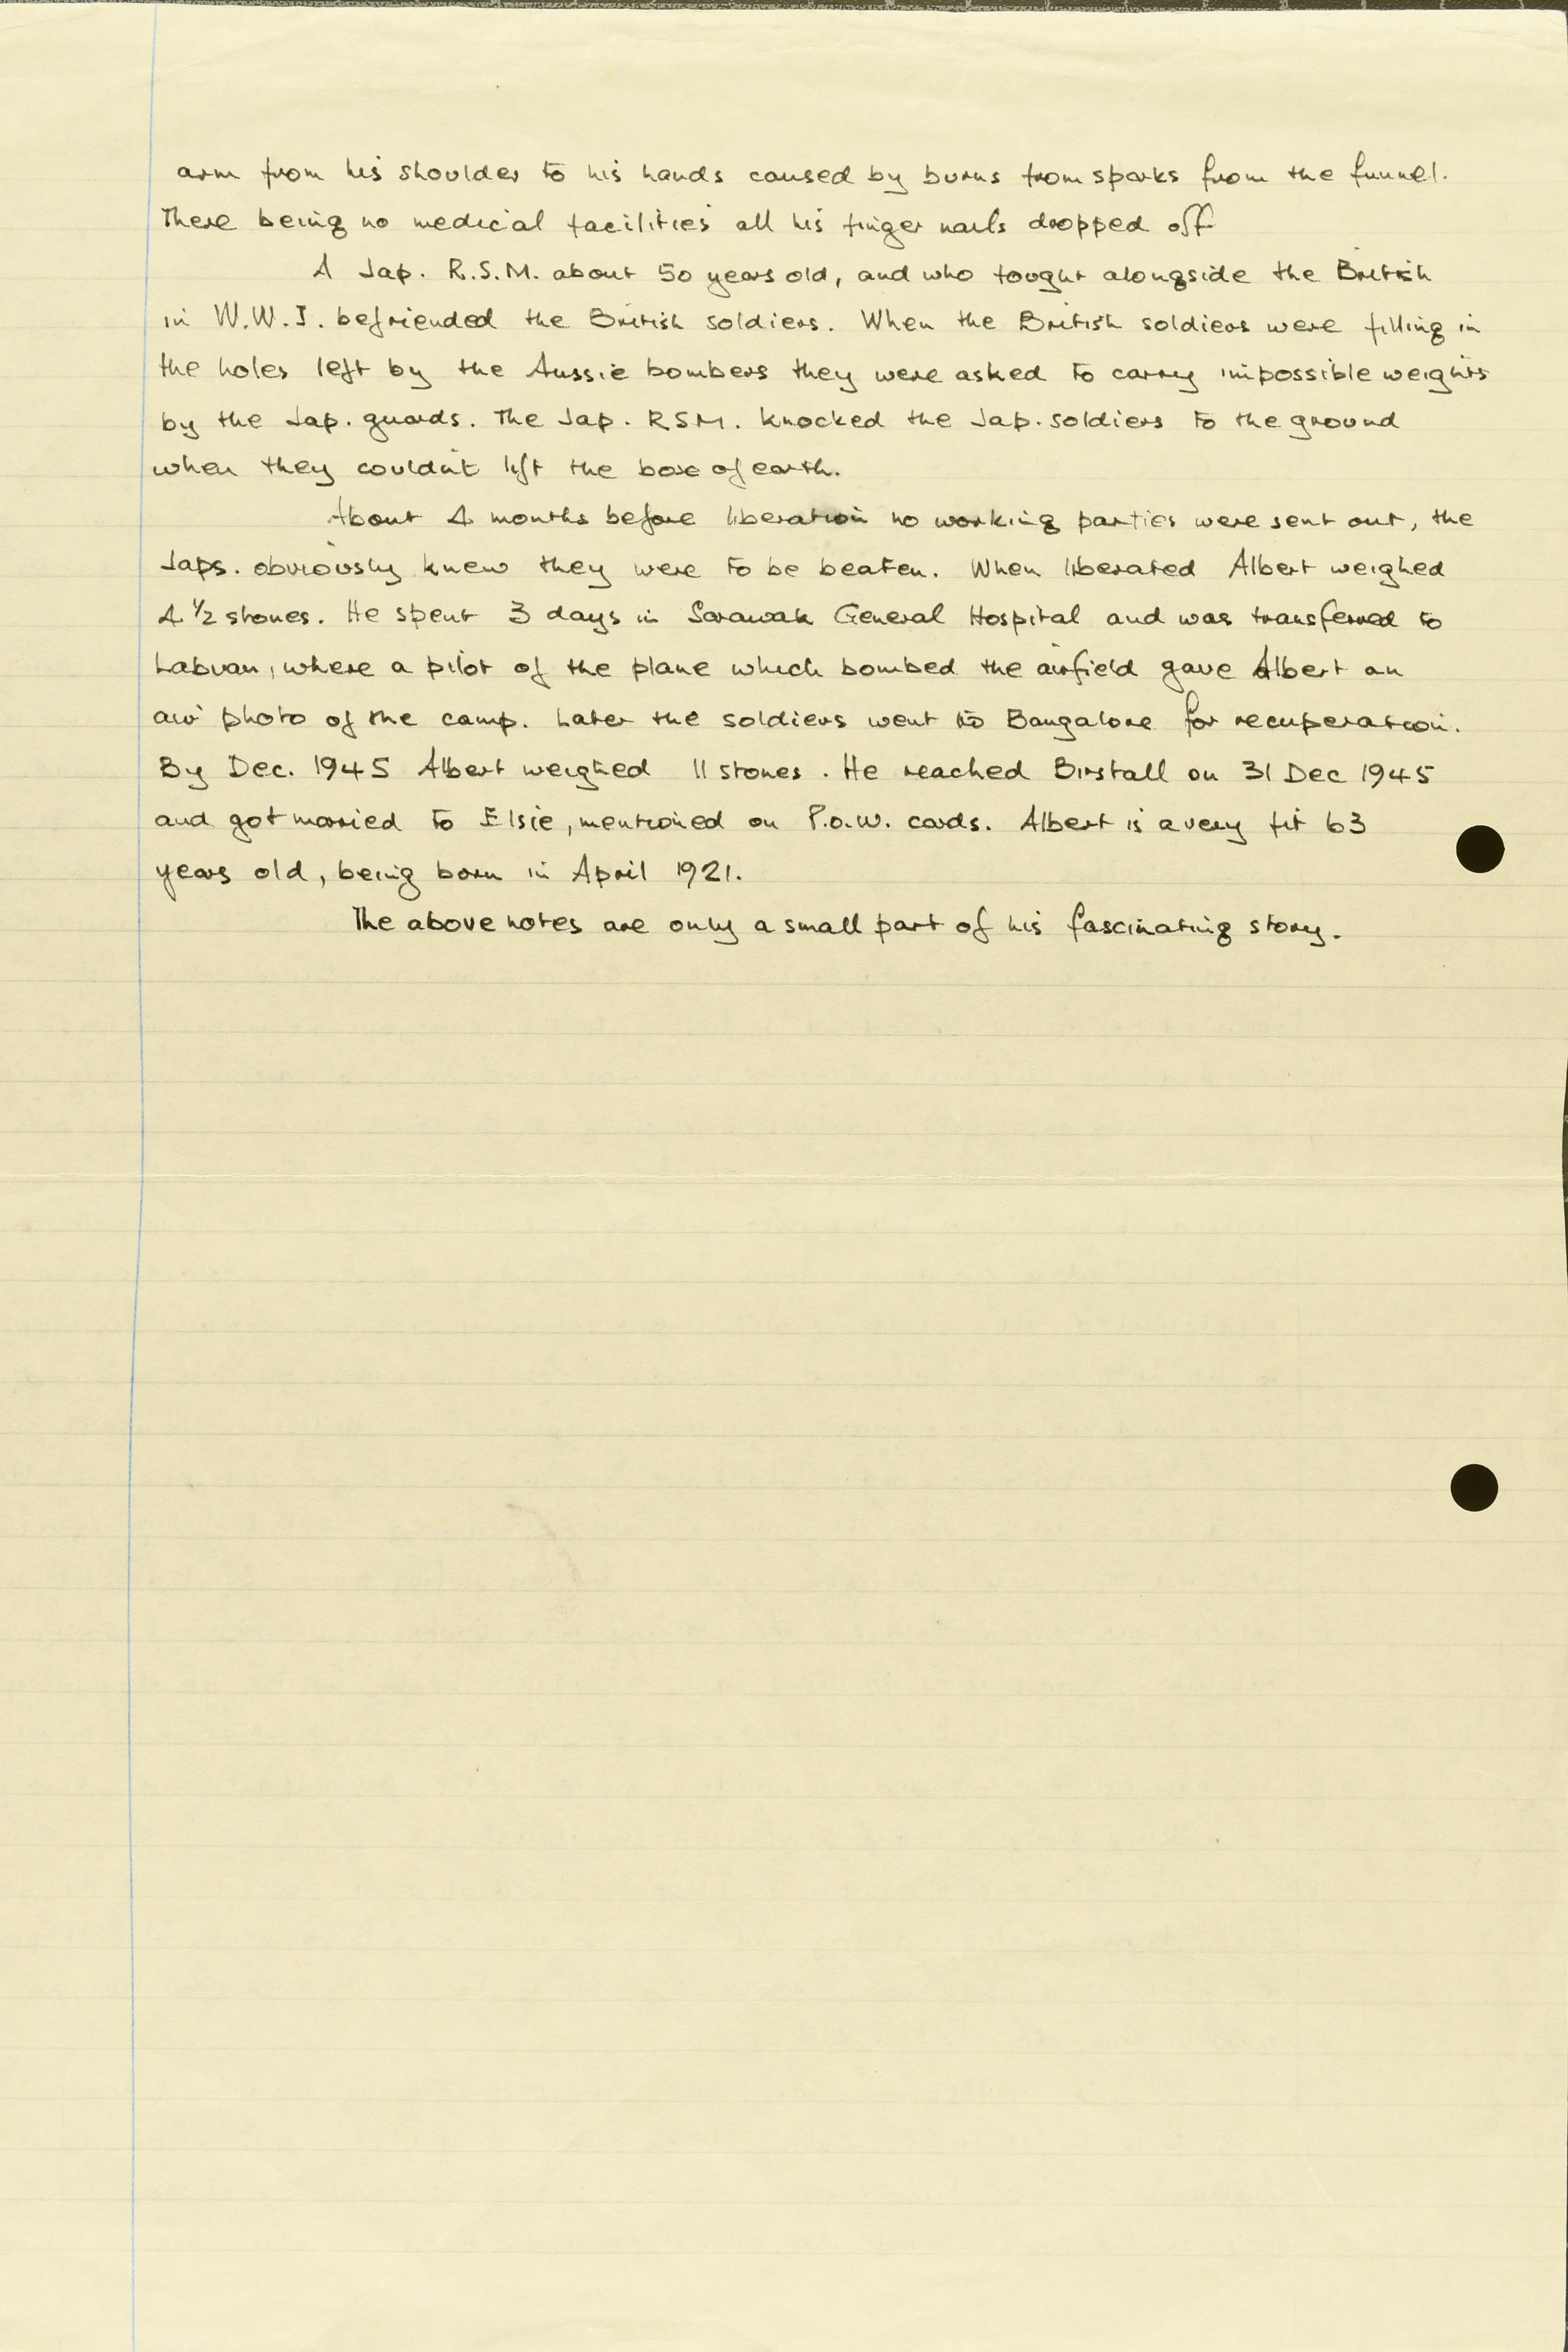 arm from his shoulder to his hands caused by burns from sparks from the funnel.
There being no medical facilities all his finger nails dropped off
A Jap. R.S.M. about 50 years old, and who fought alongside the British
in W.W.I. befriended the British soldiers. When the British soldiers were filling in
the holes left by the Aussie bombers they were asked to carry impossible weights
by the Jap. guards. The Jap. RSM. knocked the Jap. soldiers to the ground
when they couldn't lift the box of earth.
About 4 months before liberation no working parties were sent out, the
Japs. obviously knew they were to be beaten. When liberated Albert weighed
4 1/2 stones. He spent 3 days in Sarawak General Hospital and was transferred to
Labuan, where a pilot of the plane which bombed the airfield gave Albert an
air photo of the camp. Later the soldiers went to Bangalore for recuperation.
By Dec. 1945 Albert weighed 11 stones. He reached Birstall on 31 Dec 1945
and got married to Elsie, mentioned on P.O.W. cards. Albert is a very fit 63
years old, being born in April 1921.
The above notes are only a small part of his fascinating story.